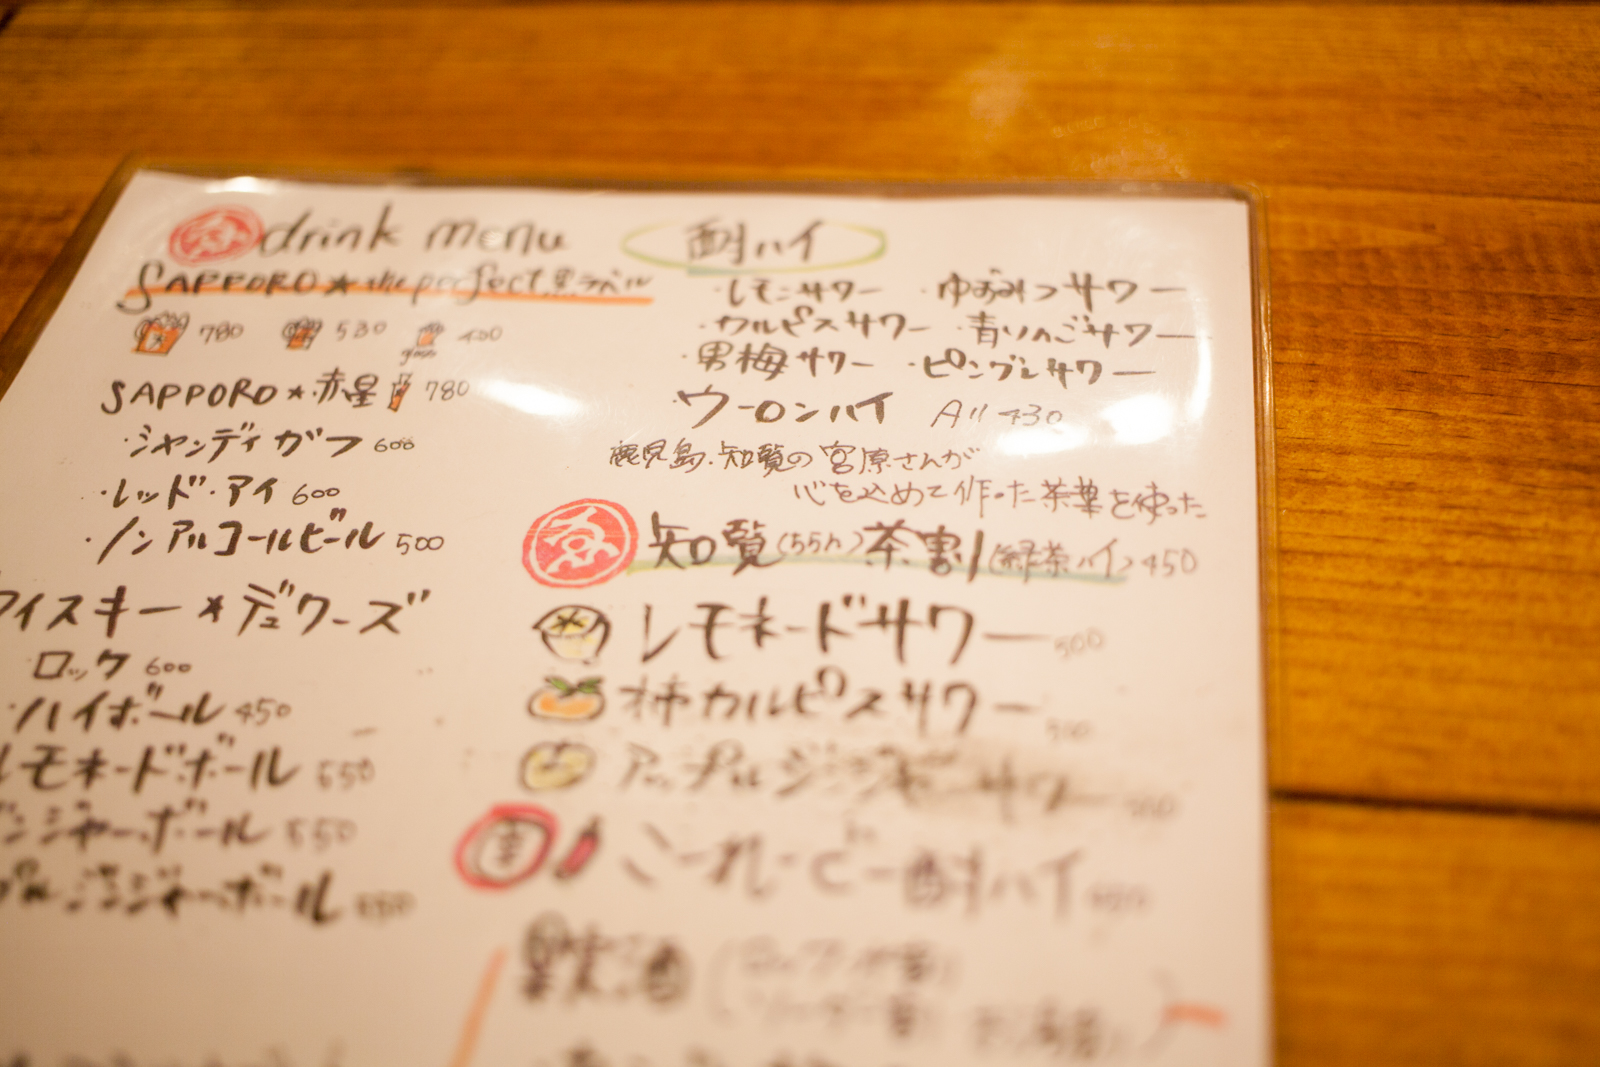 drink menu
SAPPORO★the perfect 黒ラベル
780 530 400
SAPPORO★赤星 780
・シャンディガフ 600
・レッド・アイ 600
・ノンアルコールビール 500
ウイスキー★デュワーズ
ロック 600
・ハイボール 450
レモネードボール 550
ジンジャーボール 550
ジンジャーボール 550
酎ハイ
・レモンサワー ・ゆずみつサワー
・カルピスサワー ・青りんごサワー
・男梅サワー ・ピングレサワー
・ウーロンハイ All 430
鹿児島・知覧の宮原さんが
心を込めて作った茶葉を使った
知覧(ちらん)茶割(緑茶ハイ) 450
レモネードサワー 500
柿カルピスサワー 500
アップルジンジャーサワー 500
こーれーぐー酎ハイ
果実酒